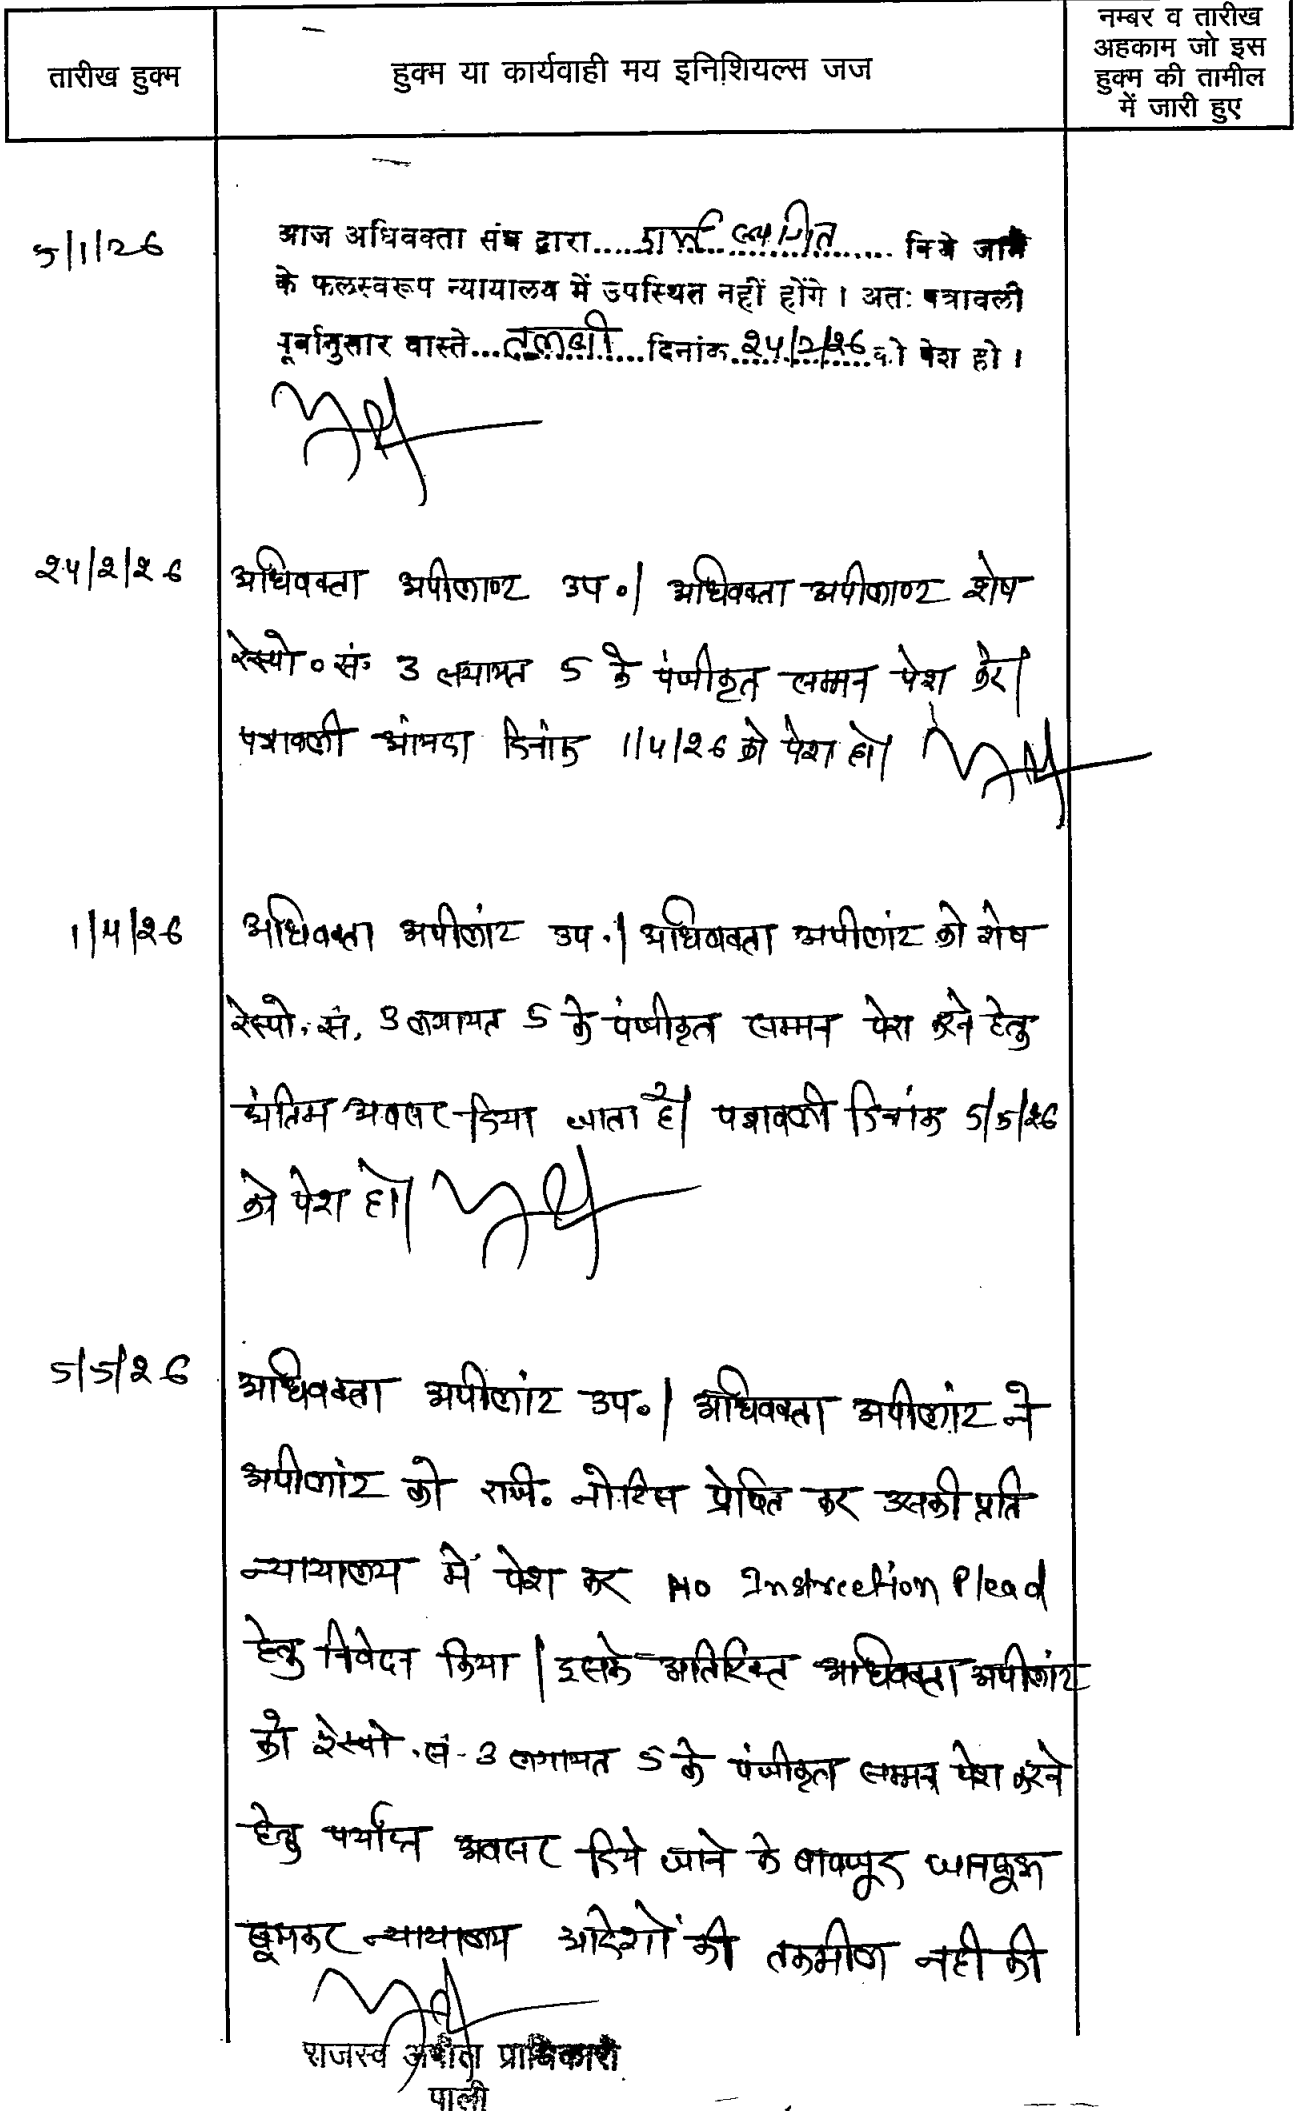 तारीख हुक्म
हुक्म या कार्यवाही मय इनिशियल्स जज
नम्बर व तारीख
अहकाम जो इस
हुक्म की तामील
में जारी हुए
5/1/26
आज अधिवक्ता संघ द्वारा.....कार्य स्थगित.......किये जाने
के फलस्वरूप न्यायालय में उपस्थित नहीं होंगे । अतः पत्रावली
पूर्वानुसार वास्ते...तलबी...दिनांक 24/2/26 को पेश हो ।
24/2/26
अधिवक्ता अपीलाण्ट उप०। अधिवक्ता अपीलाण्ट शेष
रेस्पो० सं० 3 लगायत 5 के पंजीकृत सम्मन पेश करे।
पत्रावली आंयदा दिनांक 1/4/26 को पेश हो।
1/4/26
अधिवक्ता अपीलांट उप.। अधिवक्ता अपीलांट को शेष
रेस्पो. सं. 3 लगायत 5 के पंजीकृत सम्मन पेश करने हेतु
अंतिम अवसर दिया जाता है। पत्रावली दिनांक 5/5/26
को पेश हो।
5/5/26
अधिवक्ता अपीलांट उप०। अधिवक्ता अपीलांट ने
अपीलांट को राजि० नोटिस प्रेषित कर उसकी प्रति
न्यायालय में पेश कर No Instrection Plead
हेतु निवेदन किया। इसके अतिरिक्त अधिवक्ता अपीलांट
को रेस्पो. सं- 3 लगायत 5 के पंजीकृत सम्मन पेश करने
हेतु पर्याप्त अवसर दिये जाने के बावजूद जानबूझ
बूझकर न्यायालय आदेशों की तकमील नही की
राजस्व अपील प्राधिकारी
पाली